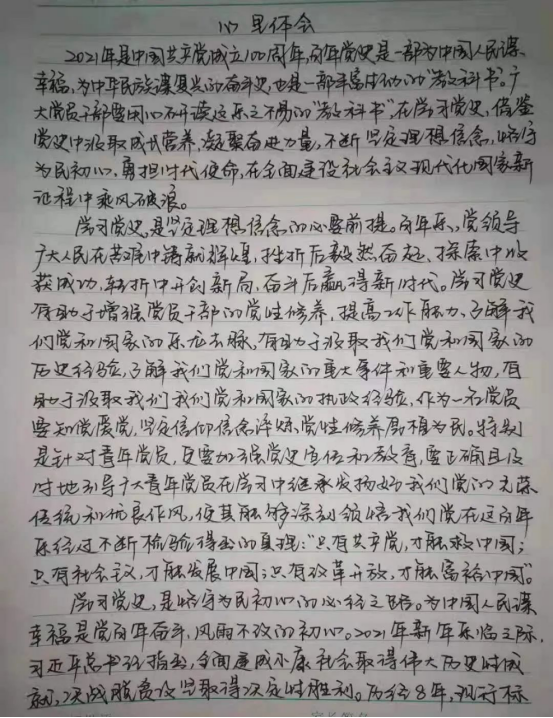 心得体会
2021年是中国共产党成立100周年,百年党史是一部为中国人民谋
幸福,为中华民族谋复兴的奋斗史,也是一部丰富生动的“教科书”。广
大党员干部要用心研读这来之不易的“教科书”,在学习党史,借鉴
党史中汲取成长营养,凝聚奋进力量,不断坚定理想信念,恪守
为民初心,勇担时代使命,在全面建设社会主义现代化国家新
征程中乘风破浪。
学习党史,是坚定理想信念的必要前提。百年来,党领导
广大人民在苦难中铸就辉煌,挫折后毅然奋起,探索中收
获成功,转折中开创新局,奋斗后赢得新时代。学习党史
有助于增强党员干部的党性修养,提高工作能力,了解我
们党和国家的来龙去脉,有助于汲取我们党和国家的
历史经验,了解我们党和国家的重大事件和重要人物,有
助于汲取我们我们党和国家的执政经验,作为一名党员
要知党爱党,坚定信仰信念淬炼党性修养厚植为民。特别
是针对青年党员,更要加强党史宣传和教育,要正确且及
时地引导广大青年党员在学习中继承发扬好我们党的光荣
传统和优良作风,使其能够深刻领悟我们党在这百年
来经过不断检验得出的真理:“只有共产党,才能救中国;
只有社会主义,才能发展中国;只有改革开放,才能富裕中国”。
学习党史,是恪守为民初心的必经之路。为中国人民谋
幸福是党百年奋斗,风雨不改的初心。2021年新年来临之际,
习近平总书记指出,全面建成小康社会取得伟大历史性成
就,决战脱贫攻坚取得决定性胜利。历经8年,现行标